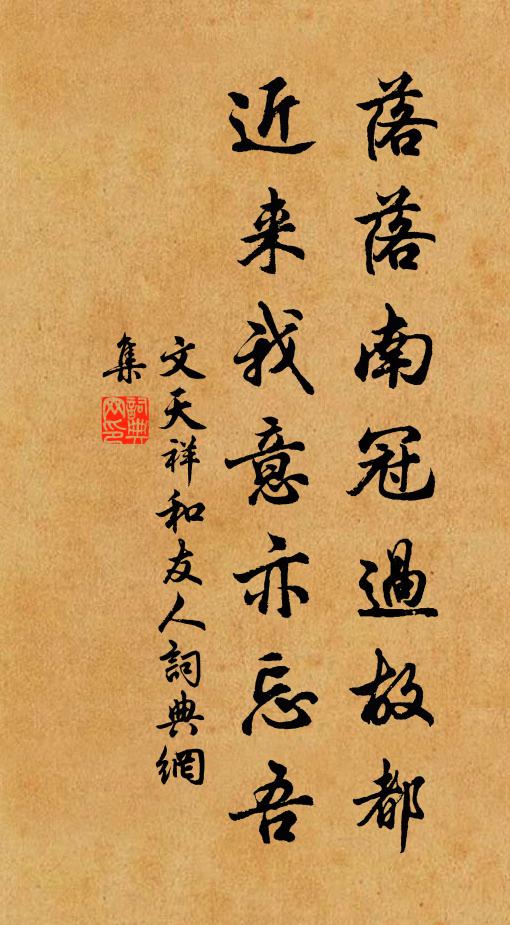 落落南冠過故都
近来我意亦忘吾
文天祥和友人詞典網
集
詞典
网印